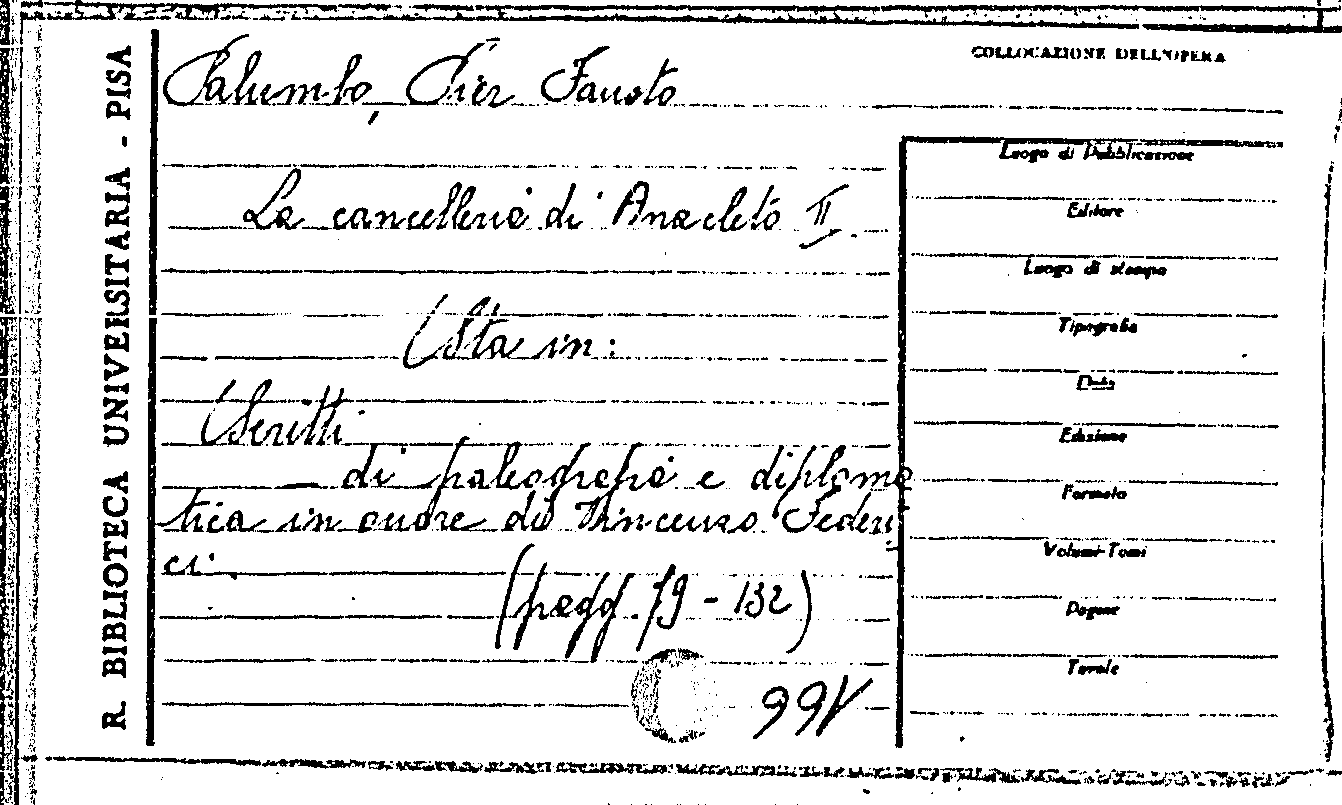 R. BIBLIOTECA UNIVERSITARIA - PISA
COLLOCAZIONE DELL'OPERA
Palumbo, Pier Fausto
La cancelleria di Anacleto II.
Sta in:
Scritti
di paleografia e diploma
tica in onore di Vincenzo Federi
ci.
(pagg. 79-132)
Luogo di Pubblicazione
Editore
Luogo di stampa
Tipografia
Data
Edizione
Formato
Volumi-Tomi
Pagine
Tavole